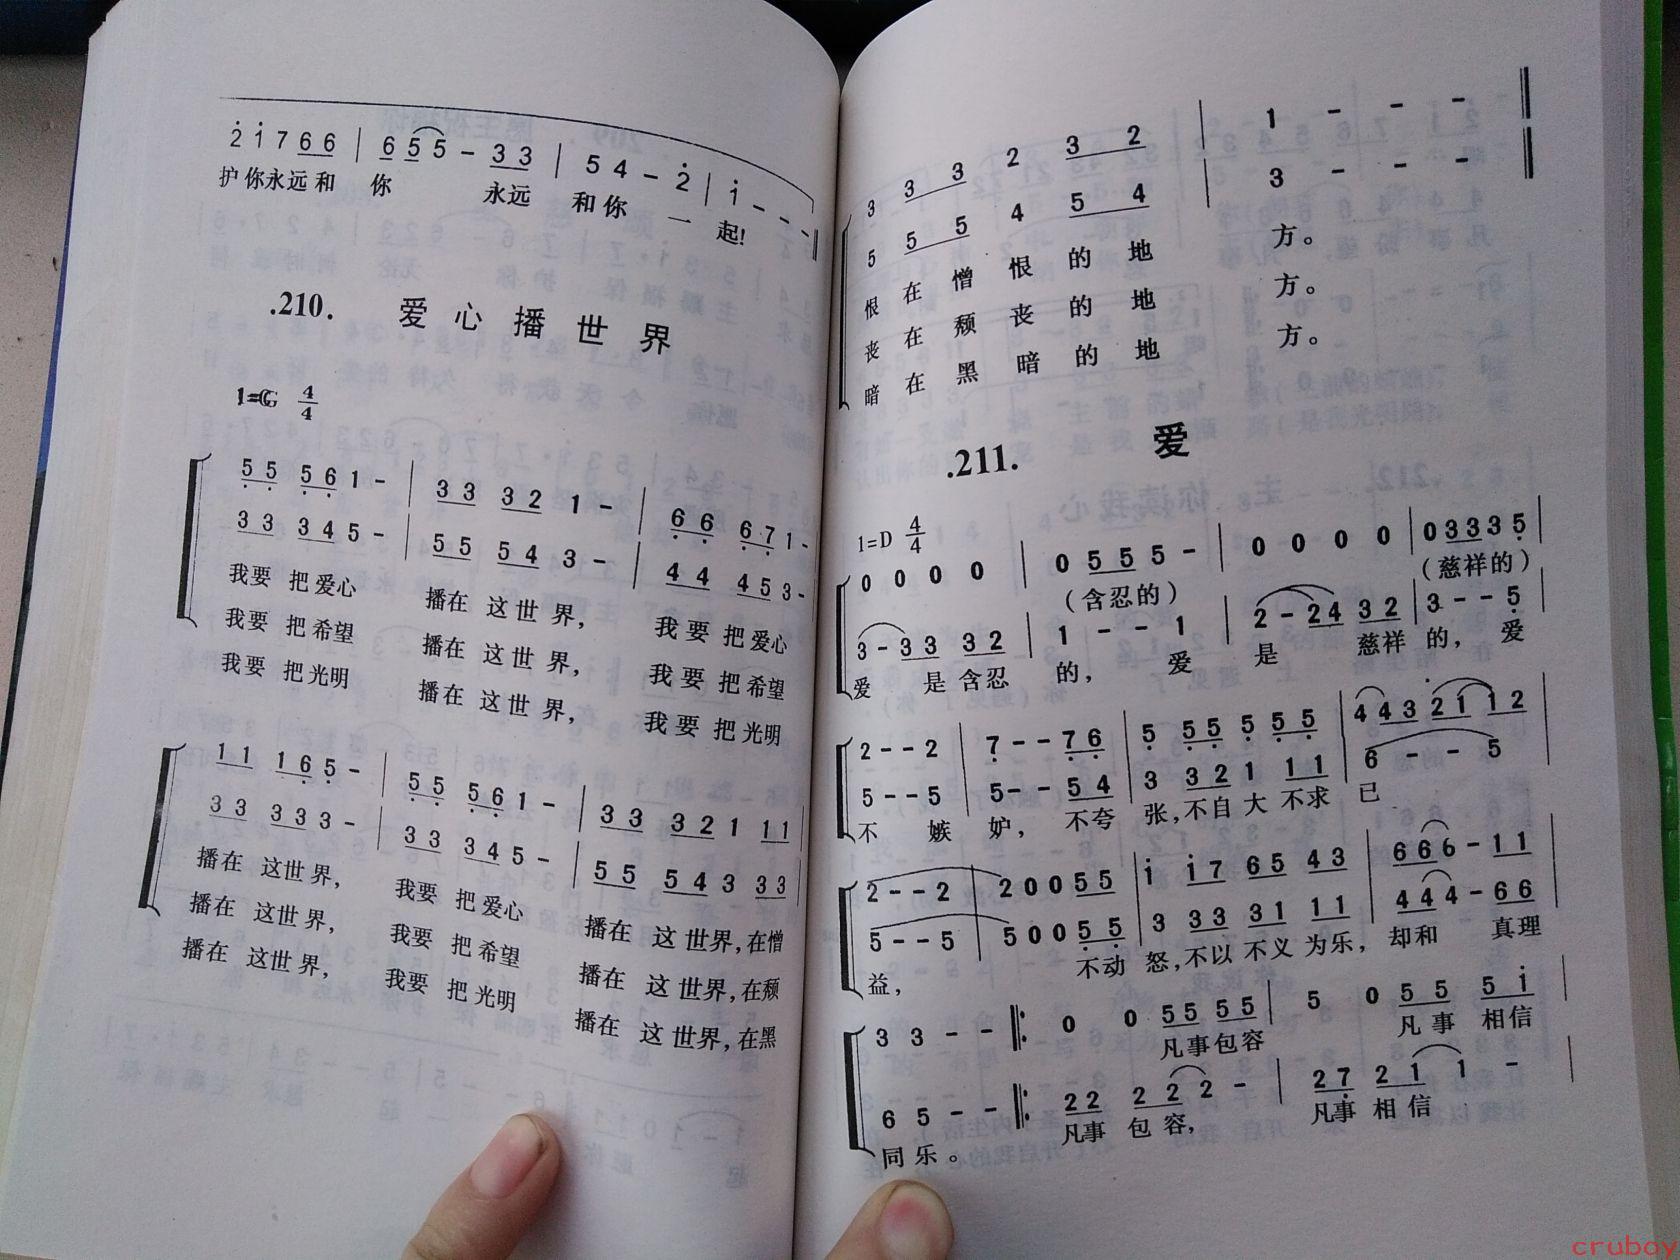 2̇ 1̇ 7 6 6 | 6 5 5 - 3 3 | 5 4 - 2̇ | 1̇ - - -
护 你 永 远 和 你 永远 和 你 一 起!
.210. 爱 心 播 世 界
1=G 4/4
5̣ 5̣ 5̣ 6̣ 1 - | 3 3 3 2 1 - | 6̣ 6̣ 6̣ 7̣ 1 -
3 3 3 4 5 - | 5 5 5 4 3 - | 4 4 4 5 3 -
我要 把爱心 播在 这世界, 我要 把爱心
我要 把希望 播在 这世界, 我要 把希望
我要 把光明 播在 这世界, 我要 把光明
1 1 1 6̣ 5̣ - | 5̣ 5̣ 5̣ 6̣ 1 - | 3 3 3 2 1 1 1
3 3 3 3 3 - | 3 3 3 4 5 - | 5 5 5 4 3 3 3
播在 这世界, 我要 把爱心 播在 这世界,在憎
播在 这世界, 我要 把希望 播在 这世界,在颓
播在 这世界, 我要 把光明 播在 这世界,在黑
3 3 3 2 3 2 | 1 - - -
5 5 5 4 5 4 | 3 - - -
恨 在 憎 恨 的 地 方。
丧 在 颓 丧 的 地 方。
暗 在 黑 暗 的 地 方。
.211. 爱
1=D 4/4
0 0 0 0 | 0 5 5 5 - | 0 0 0 0 | 0 3 3 3 5̣
(含忍的) (慈祥的)
3 - 3 3 3 2 | 1 - - 1 | 2 - 2 4 3 2 | 3 - - 5̣
爱 是 含忍 的, 爱 是 慈祥 的, 爱
2 - - 2 | 7̣ - - 7̣ 6̣ | 5̣ 5̣ 5̣ 5̣ 5̣ 5̣ | 4 4 3 2̇ 1 1 2
5 - - 5 | 5 - - 5 4 | 3 3 2 1 1 1 | 6 - - 5
不 嫉 妒, 不夸 张,不自大 不求 已
2 - - 2 | 2 0 0 5 5 | 1̇ 1̇ 7 6 5 4 3 | 6 6 6 - 1 1
5 - - 5 | 5 0 0 5̣ 5̣ | 3 3 3 3 1 1 1 | 4 4 4 - 6 6
益, 不动 怒,不以 不义 为乐, 却和 真理
3 3 - - ‖: 0 0 5 5 5 5 | 5 0 5 5 5 1̇
凡事包容 凡事 相信
6 5 - - ‖: 2 2 2 2 2 - | 2 7̣ 2 1 1 -
同乐。 凡事 包容, 凡事 相信
cruboy